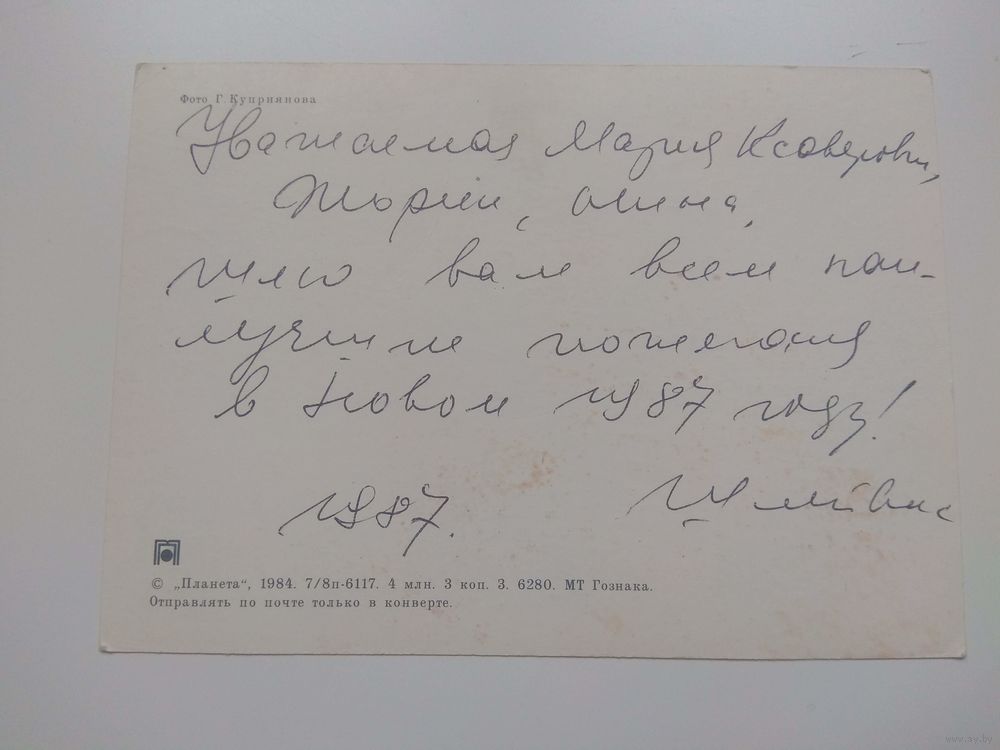 Фото Г. Куприянова
Уважаемая Мария Ксаверовн,
Юрии, Анна,
шлю вам всем наи-
лучшие пожелания
в Новом 1987 году!
1987.
© „Планета“, 1984. 7/8п-6117. 4 млн. 3 коп. З. 6280. МТ Гознака.
Отправлять по почте только в конверте.
www.ay.by